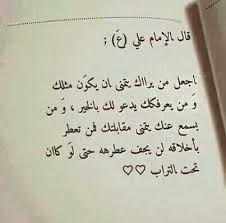 قال الإمام علي (ع) ;
اجعل من يراك يتمنى ان يكون مثلك
و من يعرفكك يدعو لك بالخير ، و من
يسمع عنك يتمنى مقابلتك فمن تعطر
بأخلاقه لن يجف عطره حتى لو كاان
تحت التراب ♡♡